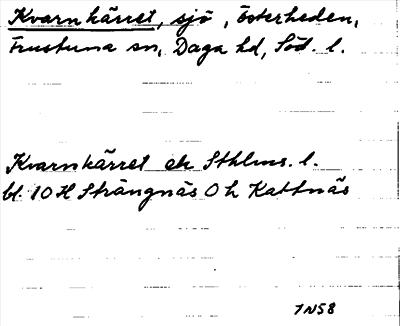 Kvarnkärret, sjö, Österheden,
Frustuna sn, Daga hd, Söd. l.
Kvarnkärret ek Sthlms. l.
bl. 10H Strängnäs 0h Kattnäs
7N58